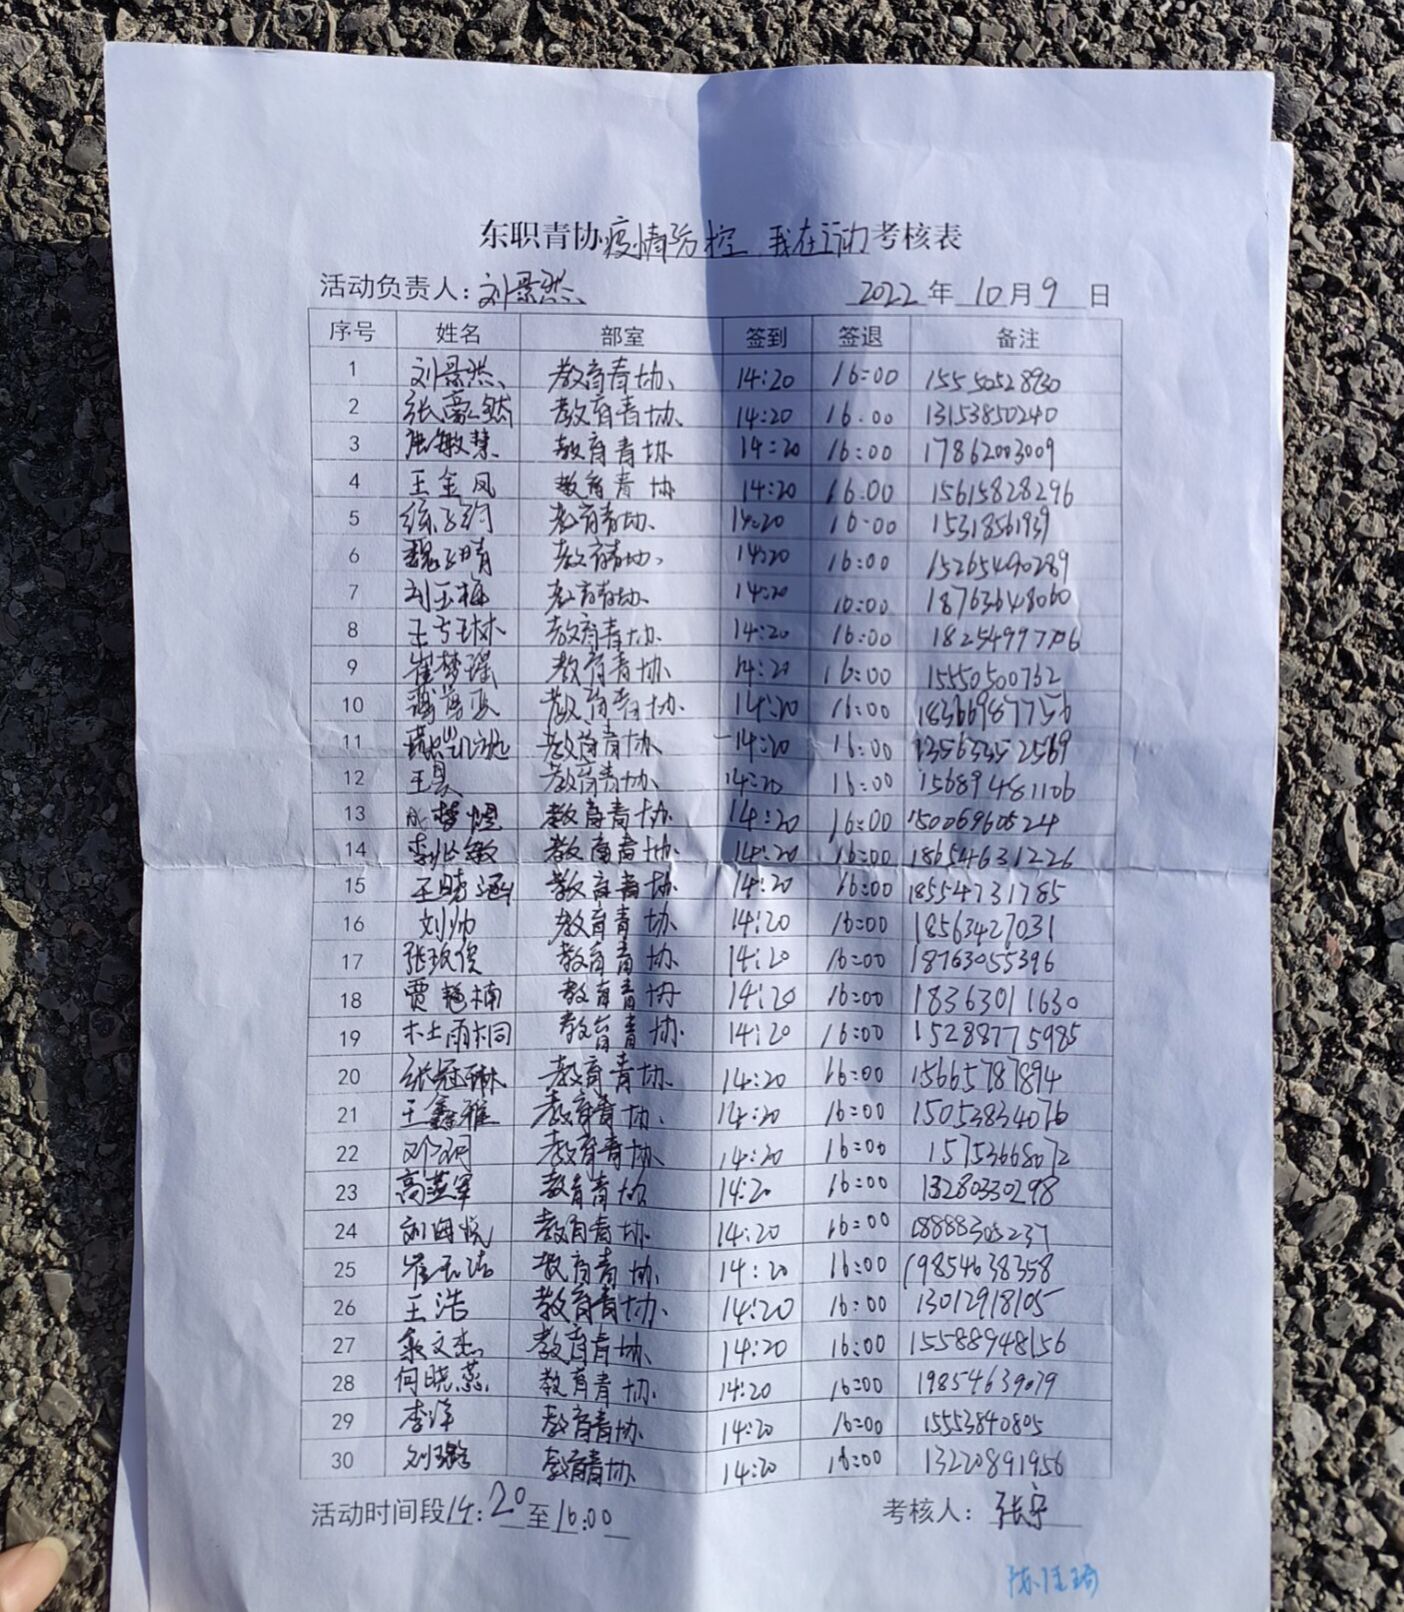 东职青协疫情防控,我在行动考核表
活动负责人:刘景然 2022年10月9日
序号 姓名 部室 签到 签退 备注
1 刘景然 教育青协 14:20 16:00 15550528930
2 张豪然 教育青协 14:20 16:00 13153850240
3 敏慧 教育青协 14:20 16:00 17862003009
4 王金凤 教育青协 14:20 16:00 15615828296
5 教育青协 14:20 16:00 15318561939
6 魏子晴 教育青协 14:20 16:00 15265490289
7 刘玉梅 教育青协 14:20 16:00 18763648060
8 教育青协 14:20 16:00 18254997706
9 崔梦瑶 教育青协 14:20 16:00 15550500732
10 教育青协 14:20 16:00 18366987756
11 教育青协 14:20 16:00 13563352569
12 王昊 教育青协 14:20 16:00 15689481106
13 梦煜 教育青协 14:20 16:00 15006960524
14 教育青协 14:20 16:00 18654631226
15 王晓涵 教育青协 14:20 16:00 18554731785
16 刘帅 教育青协 14:20 16:00 18563427031
17 张玖俊 教育青协 14:20 16:00 18763055396
18 贾艳楠 教育青协 14:20 16:00 18363011630
19 杜雨桐 教育青协 14:20 16:00 15288775985
20 张冠琳 教育青协 14:20 16:00 15665787894
21 王鑫雅 教育青协 14:20 16:00 15053834076
22 教育青协 14:20 16:00 15753668072
23 高燕军 教育青协 14:20 16:00 13280330298
24 刘海悦 教育青协 14:20 16:00 18888305237
25 崔玉洁 教育青协 14:20 16:00 19854638358
26 王浩 教育青协 14:20 16:00 13012918105
27 文杰 教育青协 14:20 16:00 15588948156
28 何晓燕 教育青协 14:20 16:00 19854639079
29 李洋 教育青协 14:20 16:00 15553840805
30 刘璐 教育青协 14:20 16:00 13220891956
活动时间段14:20至16:00 考核人:张宇
陈佳琦